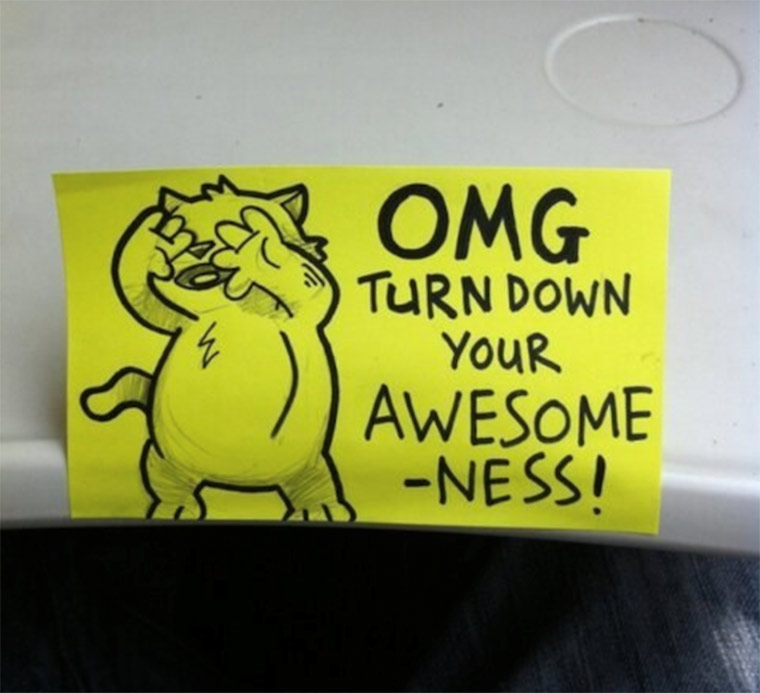 OMG
TURN DOWN
YOUR
AWESOME
-NESS!